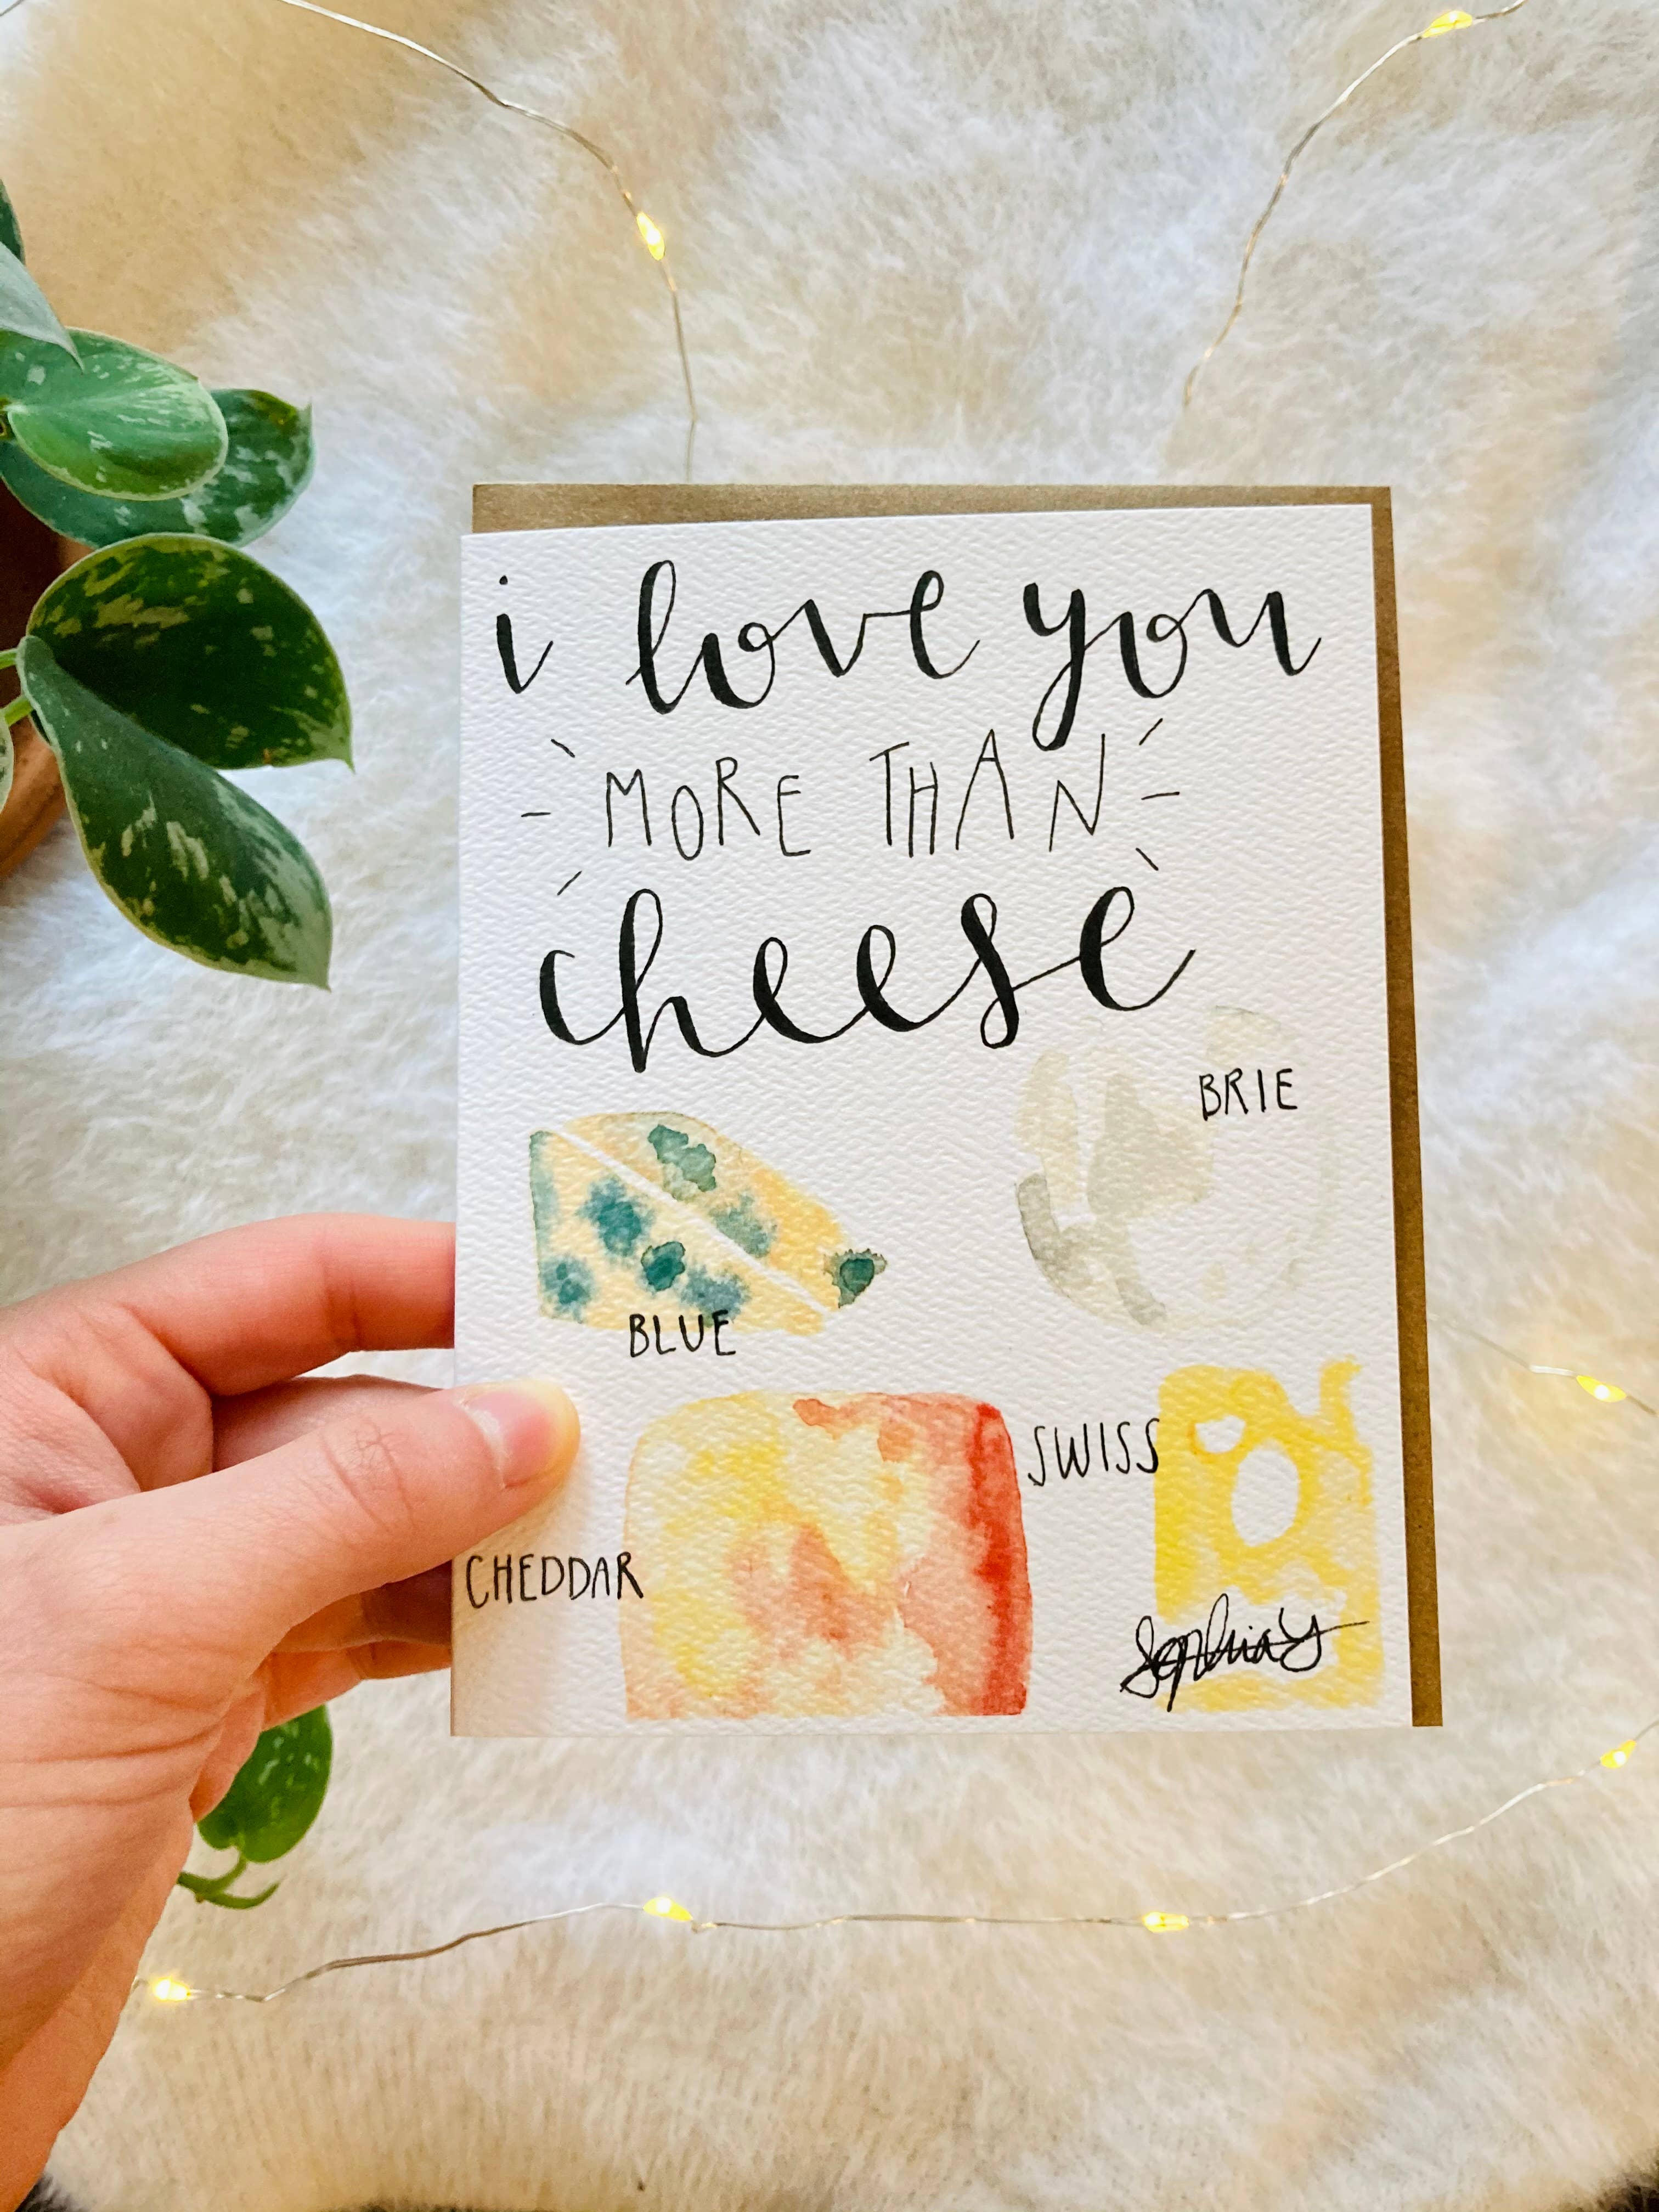 i love you
MORE THAN
cheese
BRIE
BLUE
SWISS
CHEDDAR
Sophia Y